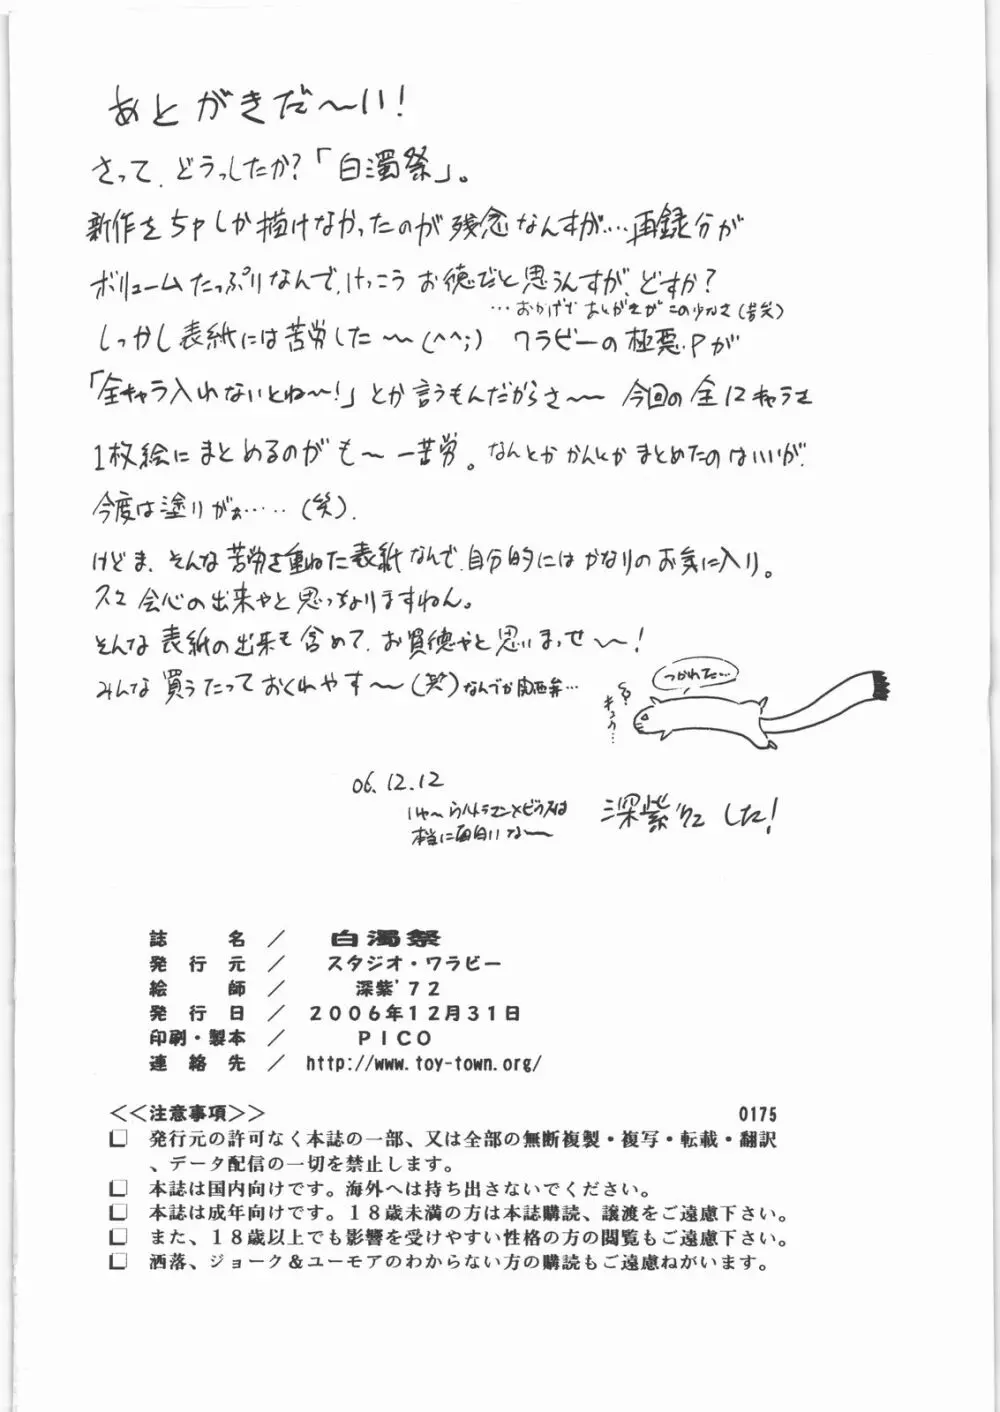 あとがきだ〜い!
さって、どうっしたか?「白濁祭」。
新作をちゃしか描けなかったのが残念なんすが…、再録分が
ボリュームたっぷりなんで、けっこうお徳だと思うんすが、どすか?
…おかげであとがきがこの少なさ(苦笑)
しっかし表紙には苦労した〜(^^;) ワラビーの極悪Pが
「全キャラ入れないとね〜!」とか言うもんだからさ〜 今回の全12キャラを
1枚絵にまとめるのがも〜一苦労。なんとかかんとかまとめたのはいいが、
今度は塗りがぁ……(笑)。
けどま、そんな苦労を重ねた表紙なんで、自分的にはかなりのお気に入り。
会心の出来やと思っちょりますねん。
そんな表紙の出来も含めて、お買徳やと思いまっせ〜!
みんな買うたっておくれやす〜(笑)なんでか関西弁…
つかれた…
キュゥ…
06.12.12
いや〜ウルトラマンメビウスは
本当に面白いな〜
深紫'72でした!
誌名／ 白濁祭
発行元／ スタジオ・ワラビー
絵師／ 深紫'72
発行日／ 2006年12月31日
印刷・製本／ PICO
連絡先／ http://www.toy-town.org/
<<注意事項>> 0175
□ 発行元の許可なく本誌の一部、又は全部の無断複製・複写・転載・翻訳
、データ配信の一切を禁止します。
□ 本誌は国内向けです。海外へは持ち出さないでください。
□ 本誌は成年向けです。18歳未満の方は本誌購読、譲渡をご遠慮下さい。
□ また、18歳以上でも影響を受けやすい性格の方の閲覧もご遠慮下さい。
□ 洒落、ジョーク＆ユーモアのわからない方の購読もご遠慮ねがいます。